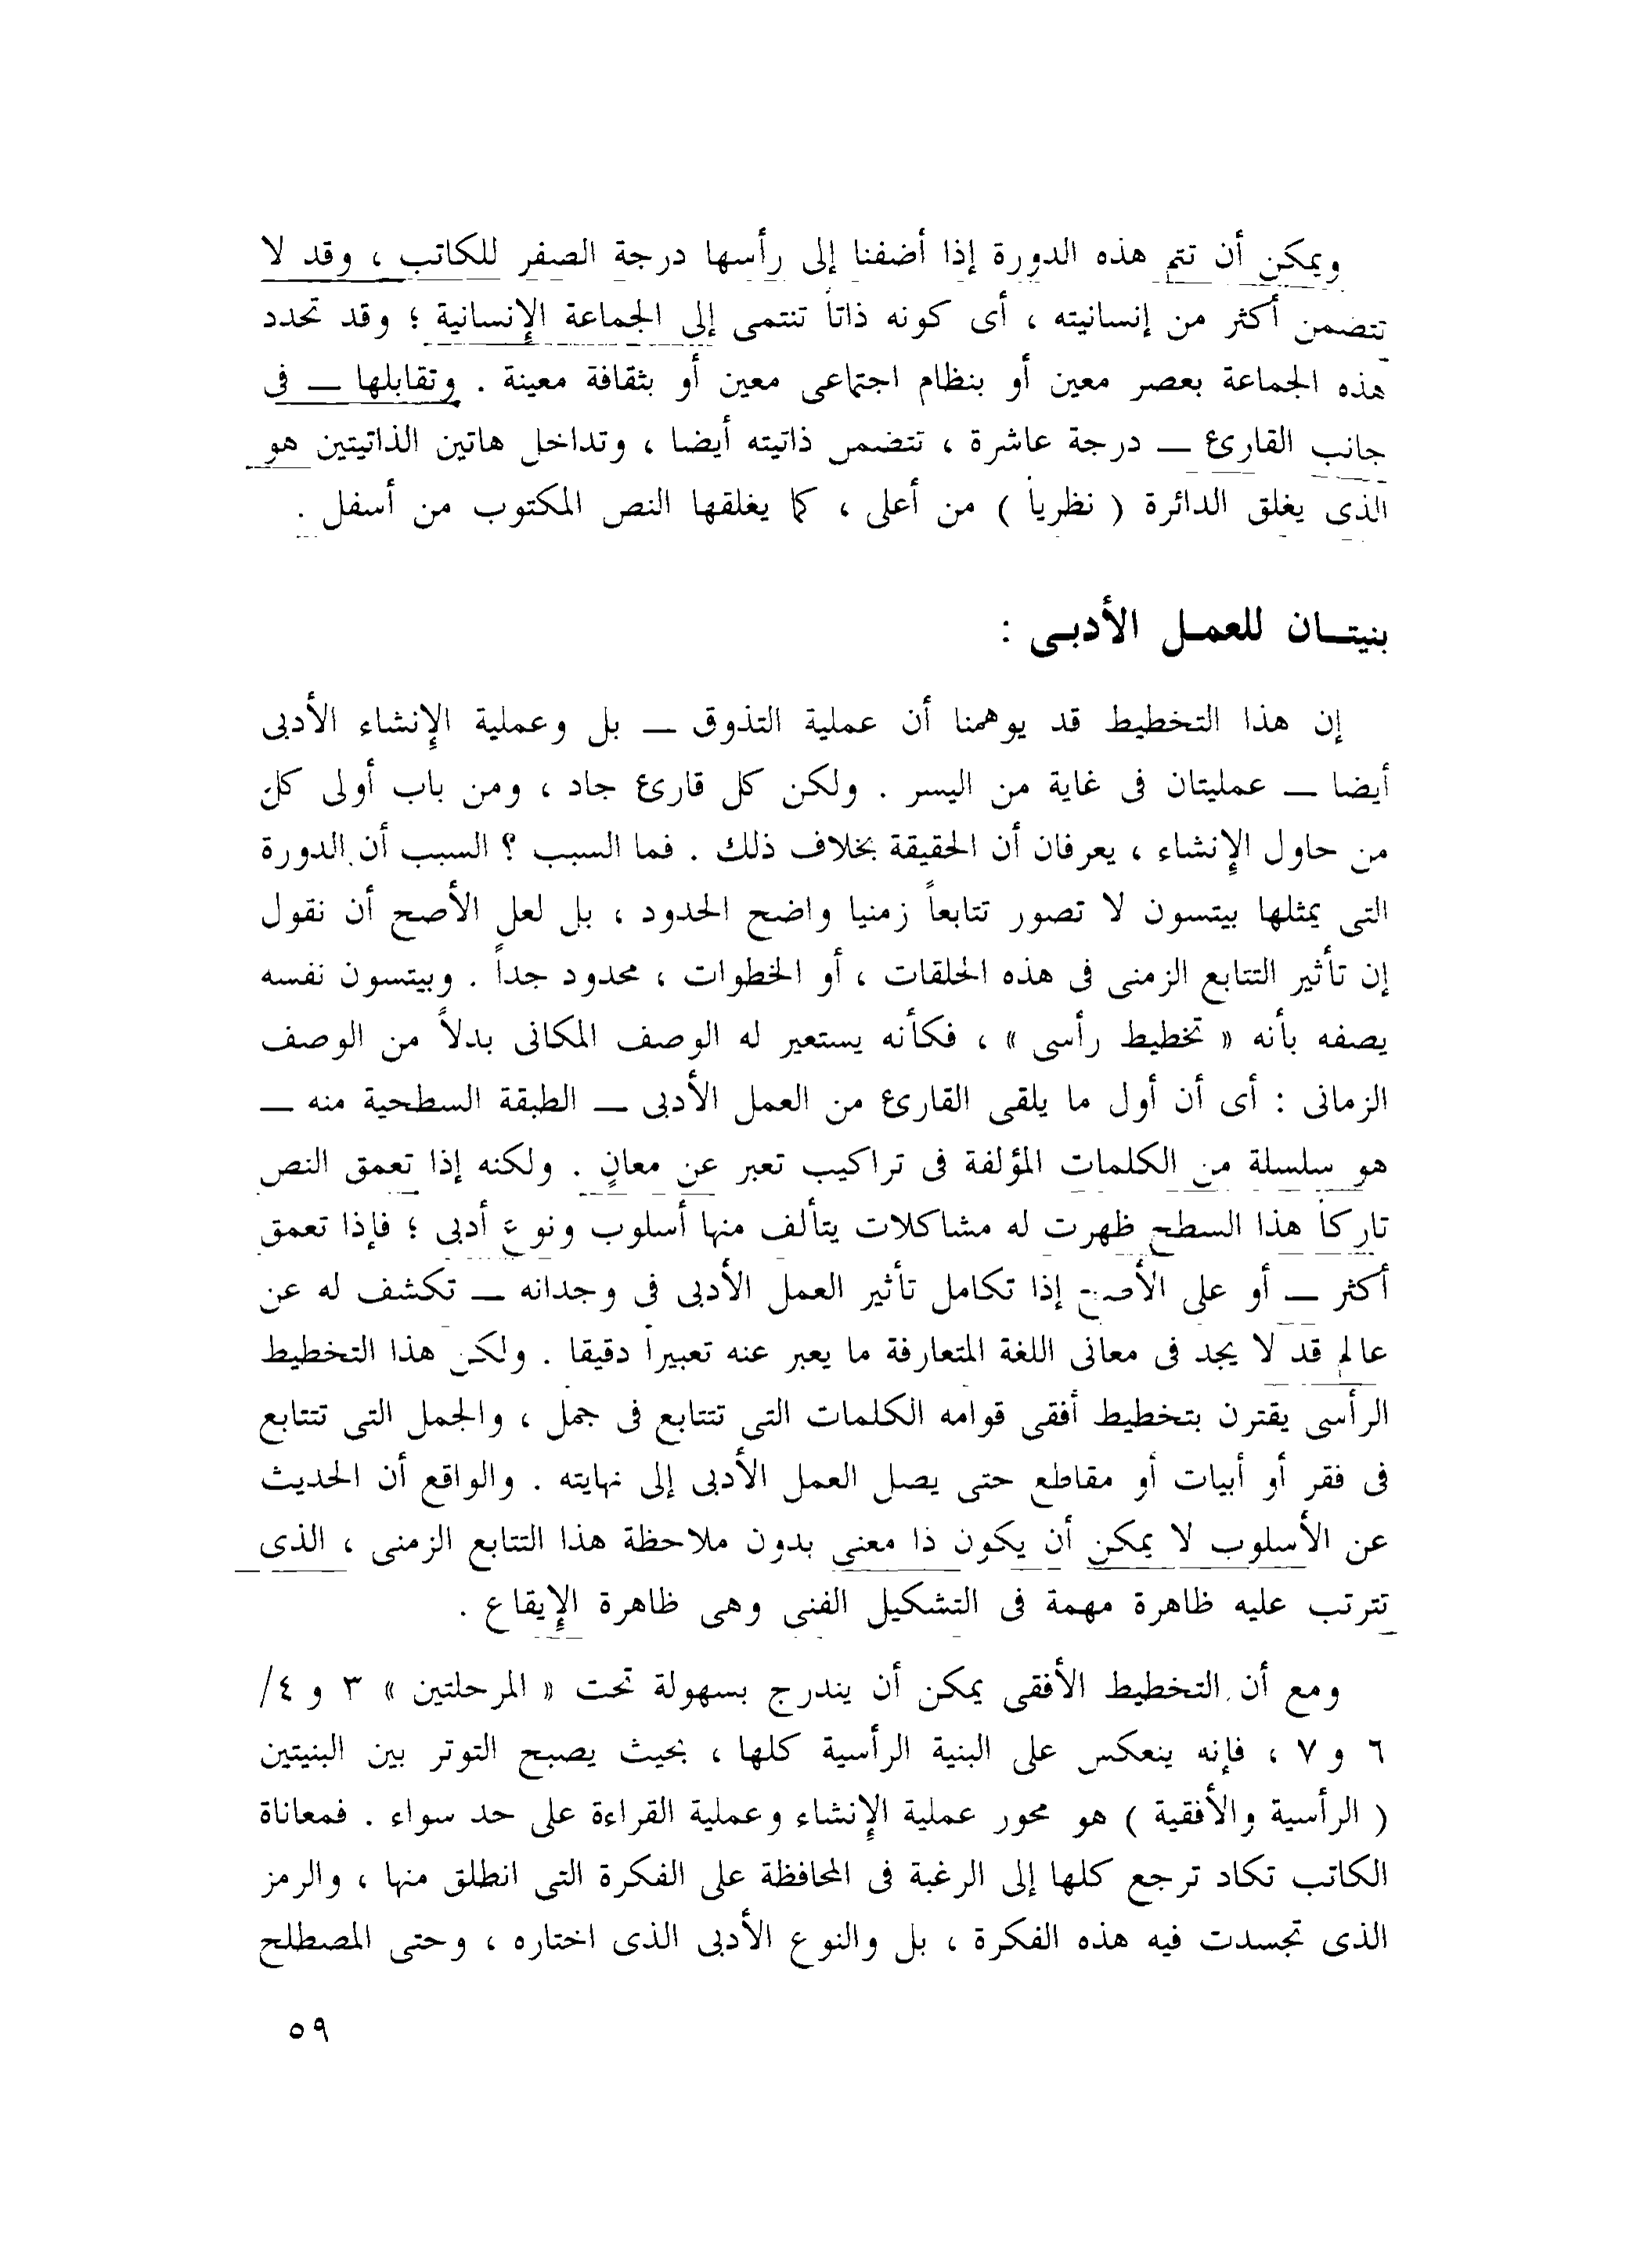 ويمكن أن تتم هذه الدورة إذا أضفنا إلى رأسها درجة الصفر للكاتب ، وقد لا
تتضمن أكثر من إنسانيته ، أى كونه ذاتاً تنتمى إلى الجماعة الإنسانية ؛ وقد تحدد
هذه الجماعة بعصر معين أو بنظام اجتماعى معين أو بثقافة معينة . وتقابلها ــ فى
جانب القارئ ــ درجة عاشرة ، تتضمن ذاتيته أيضا ، وتداخل هاتين الذاتيتين هو
الذى يغلق الدائرة ( نظرياً ) من أعلى ، كما يغلقها النص المكتوب من أسفل .
بنيتــان للعمــل الأدبــى :
إن هذا التخطيط قد يوهمنا أن عملية التذوق ــ بل وعملية الإنشاء الأدبى
أيضا ــ عمليتان فى غاية من اليسر . ولكن كل قارئ جاد ، ومن باب أولى كل
من حاول الإنشاء ، يعرفان أن الحقيقة بخلاف ذلك . فما السبب ؟ السبب أن الدورة
التى يمثلها بيتسون لا تصور تتابعاً زمنيا واضح الحدود ، بل لعل الأصح أن نقول
إن تأثير التتابع الزمنى فى هذه الحلقات ، أو الخطوات ، محدود جداً . وبيتسون نفسه
يصفه بأنه « تخطيط رأسى » ، فكأنه يستعير له الوصف المكانى بدلاً من الوصف
الزمانى : أى أن أول ما يلقى القارئ من العمل الأدبى ــ الطبقة السطحية منه ــ
هو سلسلة من الكلمات المؤلفة فى تراكيب تعبر عن معانٍ . ولكنه إذا تعمق النص
تاركاً هذا السطح ظهرت له مشاكلات يتألف منها أسلوب ونوع أدبى ؛ فإذا تعمق
أكثر ــ أو على الأصح إذا تكامل تأثير العمل الأدبى فى وجدانه ــ تكشف له عن
عالم قد لا يجد فى معانى اللغة المتعارفة ما يعبر عنه تعبيراً دقيقا . ولكن هذا التخطيط
الرأسى يقترن بتخطيط أفقى قوامه الكلمات التى تتتابع فى جمل ، والجمل التى تتتابع
فى فقر أو أبيات أو مقاطع حتى يصل العمل الأدبى إلى نهايته . والواقع أن الحديث
عن الأسلوب لا يمكن أن يكون ذا معنى بدون ملاحظة هذا التتابع الزمنى ، الذى
تترتب عليه ظاهرة مهمة فى التشكيل الفنى وهى ظاهرة الإيقاع .
ومع أن التخطيط الأفقى يمكن أن يندرج بسهولة تحت « المرحلتين » ٣ و ٤/
٦ و ٧ ، فإنه ينعكس على البنية الرأسية كلها ، بحيث يصبح التوتر بين البنيتين
( الرأسية والأفقية ) هو محور عملية الإنشاء وعملية القراءة على حد سواء . فمعاناة
الكاتب تكاد ترجع كلها إلى الرغبة فى المحافظة على الفكرة التى انطلق منها ، والرمز
الذى تجسدت فيه هذه الفكرة ، بل والنوع الأدبى الذى اختاره ، وحتى المصطلح
٥٩